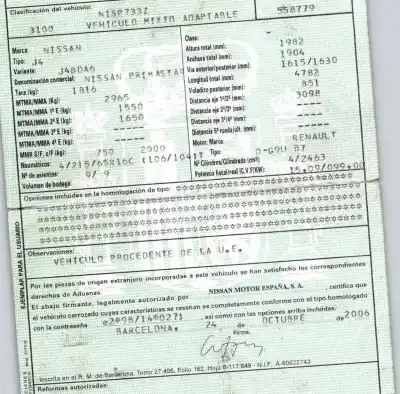 Clasificación del vehículo: 3100 NISP793Z 558779
VEHICULO MIXTO ADAPTABLE
Marca: NISSAN
Tipo: J4
Variante: J4BDA6
Denominación comercial: NISSAN PRIMASTAR
Tara (kg): 1816
MTMA/MMA (Kg): 2965
MTMA/MMA 1º E (Kg): 1550
MTMA/MMA 2º E (Kg): 1650
MTMA/MMA 3º E (Kg): -----
MTMA/MMA 4º E (Kg): -----
MMR S/F, c/F (kg): 750 2000
Neumáticos: 4/215/65R16C (106/104T)
Nº de asientos: 9/ 9
Volumen de bodega:
Clase:
Altura total (mm): 1982
Anchura total (mm): 1904
Vía anterior/posterior (mm): 1615/1630
Longitud total (mm): 4782
Voladizo posterior (mm): 851
Distancia eje 1º/2º (mm): 3098
Distancia eje 2º/3º (mm): ----
Distancia eje 3º/4º (mm): ----
Distancia 5ª rueda/últ. (mm): ----
Motor: Marca: RENAULT
Tipo: D-G9U B7
Nº Cilindros/Cilindrada (cm³): 4/2463
Potencia fiscal/real (C.V.F/KW): 15.09/099.00
Opciones incluidas en la homologación de tipo:
Observaciones:
VEHICULO PROCEDENTE DE LA U.E.
EJEMPLAR PARA EL USUARIO
Por las piezas de origen extranjero incorporadas a este vehículo se han satisfecho los correspondientes
derechos de Aduanas.
El abajo firmante, legalmente autorizado por NISSAN MOTOR ESPAÑA, S. A. , certifica que
el vehículo carrozado cuyas características se reseñan es completamente conforme con el tipo homologado
con la contraseña , así como con las opciones arriba incluidas.
BARCELONA, 24 de OCTUBRE de 2006
Firma,
Inscrita en el R. M. de Barcelona, Tomo 27.406, Folio 162, Hoja B-117.649 - N.I.F. A-60622743
Reformas autorizadas: